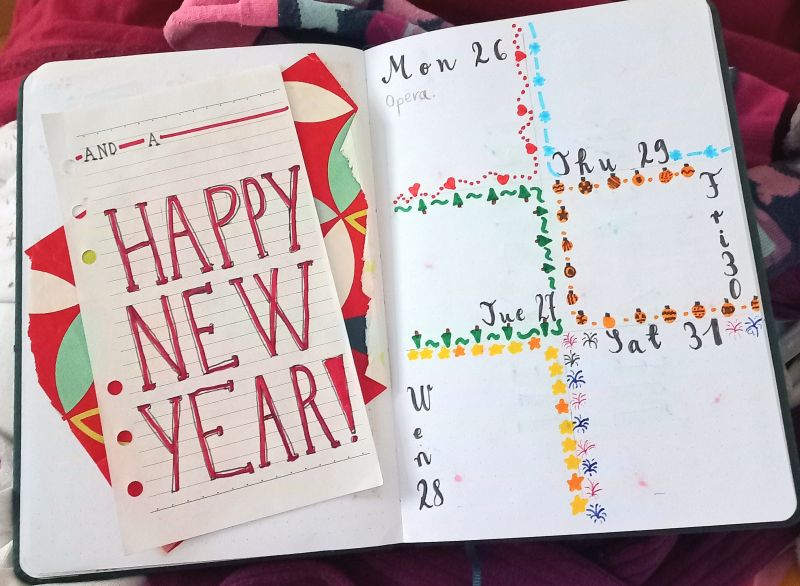 AND A
HAPPY
NEW
YEAR!
Mon 26
Opera.
Tue 27
Wen 28
Thu 29
Fri 30
Sat 31